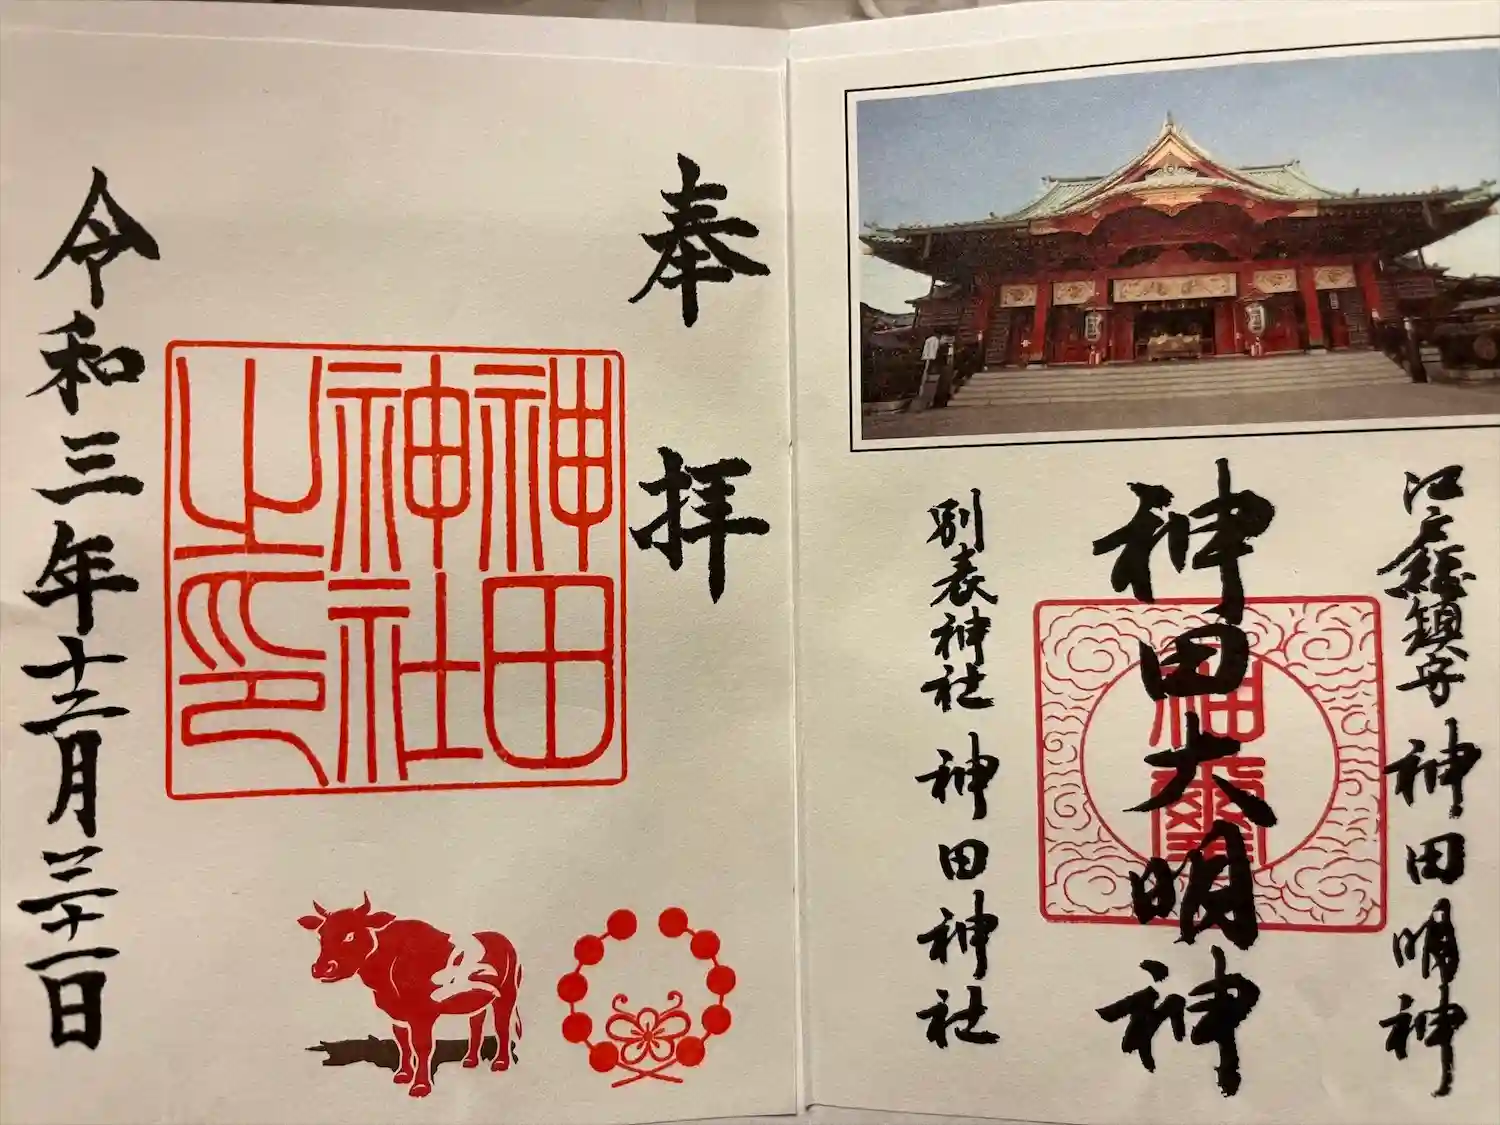 江戸総鎮守 神田明神
神田大明神
神璽
別表神社 神田神社
奉拝
神田
神社
之印
令和三年十二月三十一日